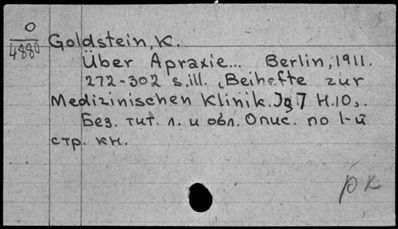 О
4880
Goldstein, K.
Über Apraxie... Berlin, 1911.
272-302 s. ill. (Beihefte zur
Medizinischen Klinik. Jg 7 H.10).
Без. тит. л. и обл. Опис. по 1-й
стр. кн.
рк